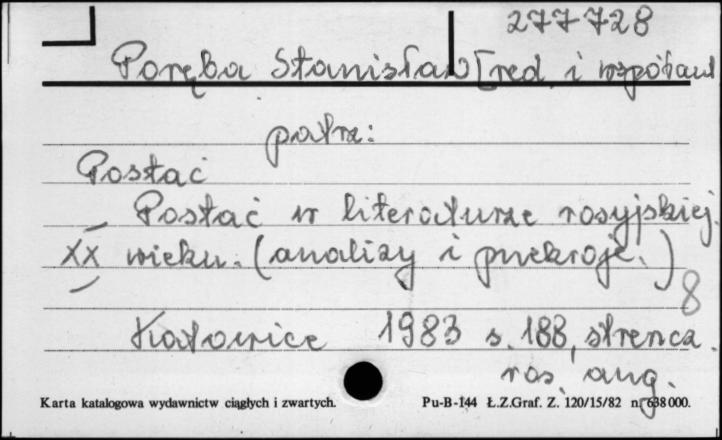 277728
Poręba Stanisław [red. i współaut
patrz:
Postać
Postać w literaturze rosyjskiej
XX wieku. (analizy i przekroje.)
8
Katowice 1983 s. 188, streszcz.
ros. ang.
Karta katalogowa wydawnictw ciągłych i zwartych. Pu-B-144 Ł.Z.Graf. Z. 120/15/82 n. 638 000.